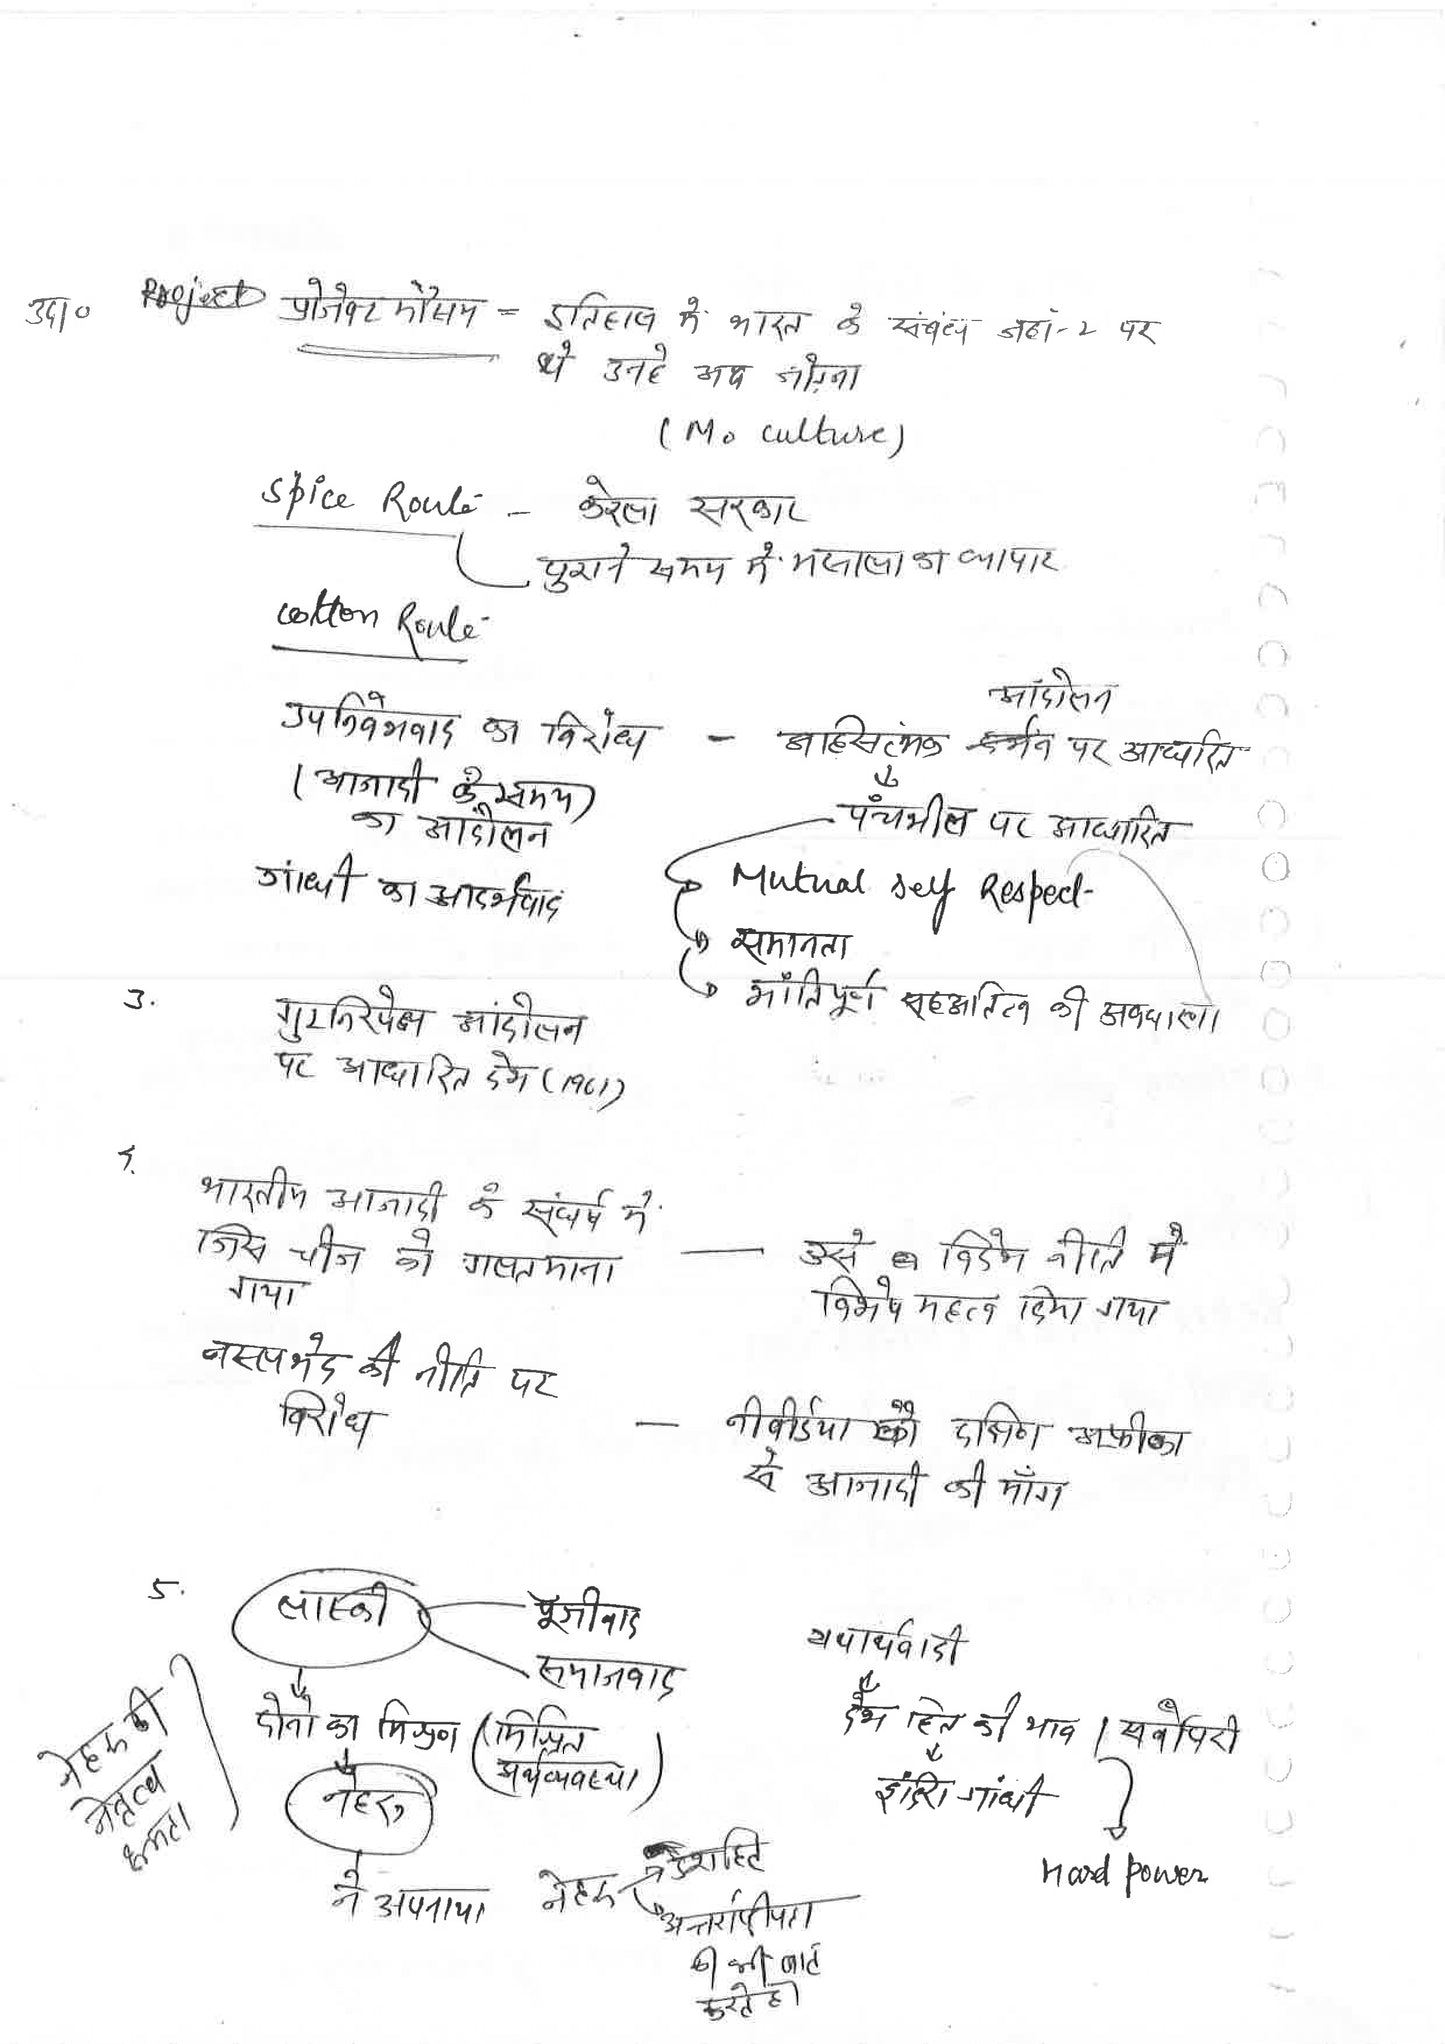 उदा० प्रोजेक्ट मौसम = इतिहास में भारत के संबंध जहां-२ पर
थे उन्हे अब जोड़ना
(Mo culture)
Spice Route - केरला सरकार
पुराने समय में मसाला का व्यापार
Cotton Route
उपनिवेशवाद का विरोध - अहिंसात्मक आंदोलन पर आधारित
(आजादी के समय)
का आंदोलन
पंचशील पर आधारित
गांधी का आदर्शवाद
Mutual self Respect
समानता
शांतिपूर्ण सहअस्तित्व की अवधारणा
3. गुटनिरपेक्ष आंदोलन
पर आधारित देश (1961)
4.
भारतीय आजादी के संघर्ष में
जिस चीज को गलत माना
गया
— उसे विदेश नीति में
विशेष महत्व दिया गया
नस्लभेद की नीति पर
विरोध
— नीबीडिया को दक्षिण अफ्रीका
से आजादी की माँग
5. लास्की
पूंजीवाद
समाजवाद
दोनो का मिश्रण (मिश्रित
अर्थव्यवस्था)
नेहरू
ने अपनाया
नेहरू की
नेतृत्व
क्षमता
नेहरू
देशहित
अन्तर्राष्ट्रीयता
की भी बात
करते है।
यथार्थवादी
देश हित की भाव / सर्वोपरी
इंदिरा गांधी
Hard power